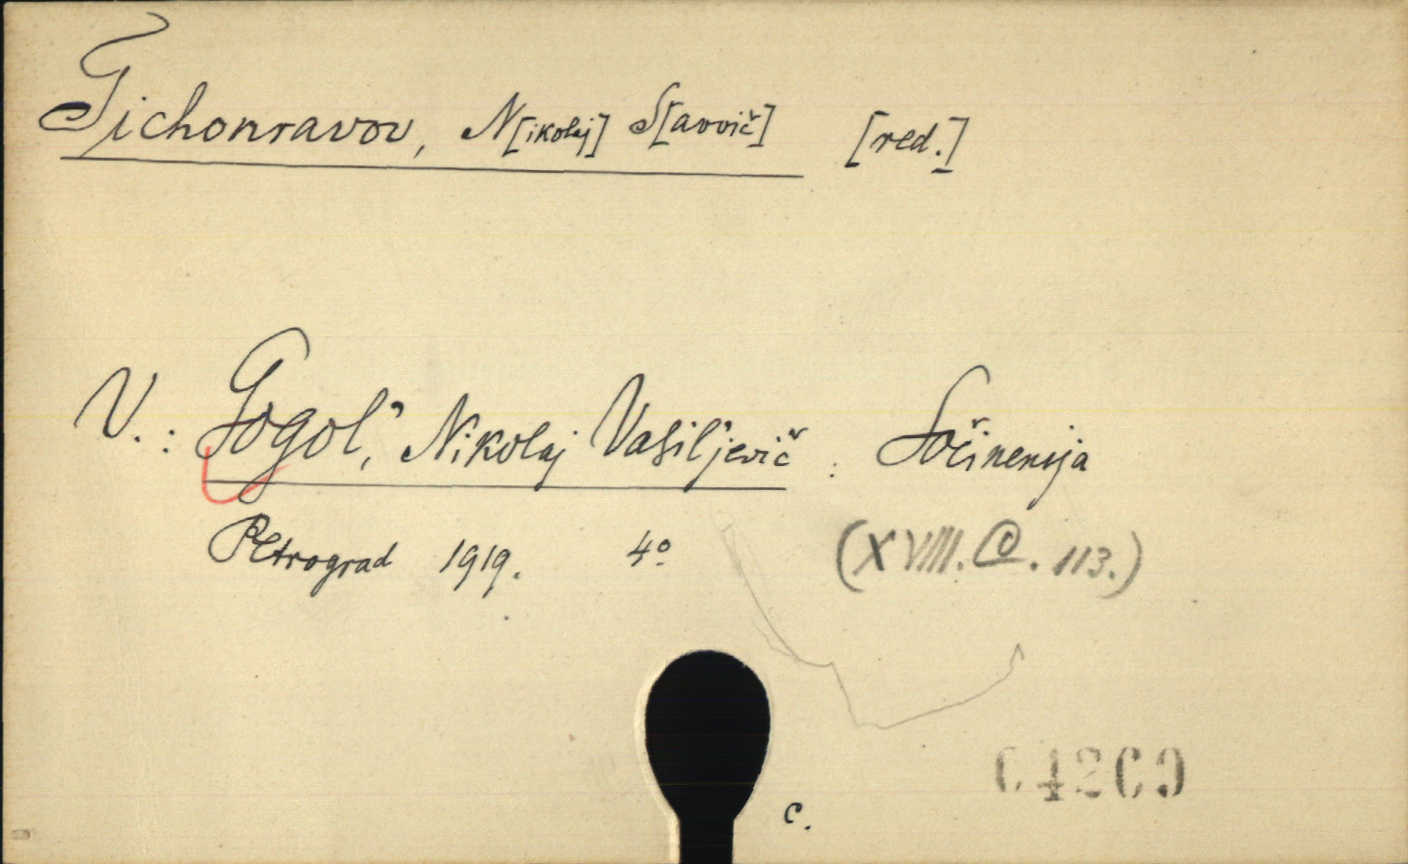 Tichonravov, N[ikolaj] S[avvič] [red.]
V.: Gogol', Nikolaj Vasil'jevič : Sočinenija
Petrograd 1919. 4º (XVIII. D. 113.)
c.